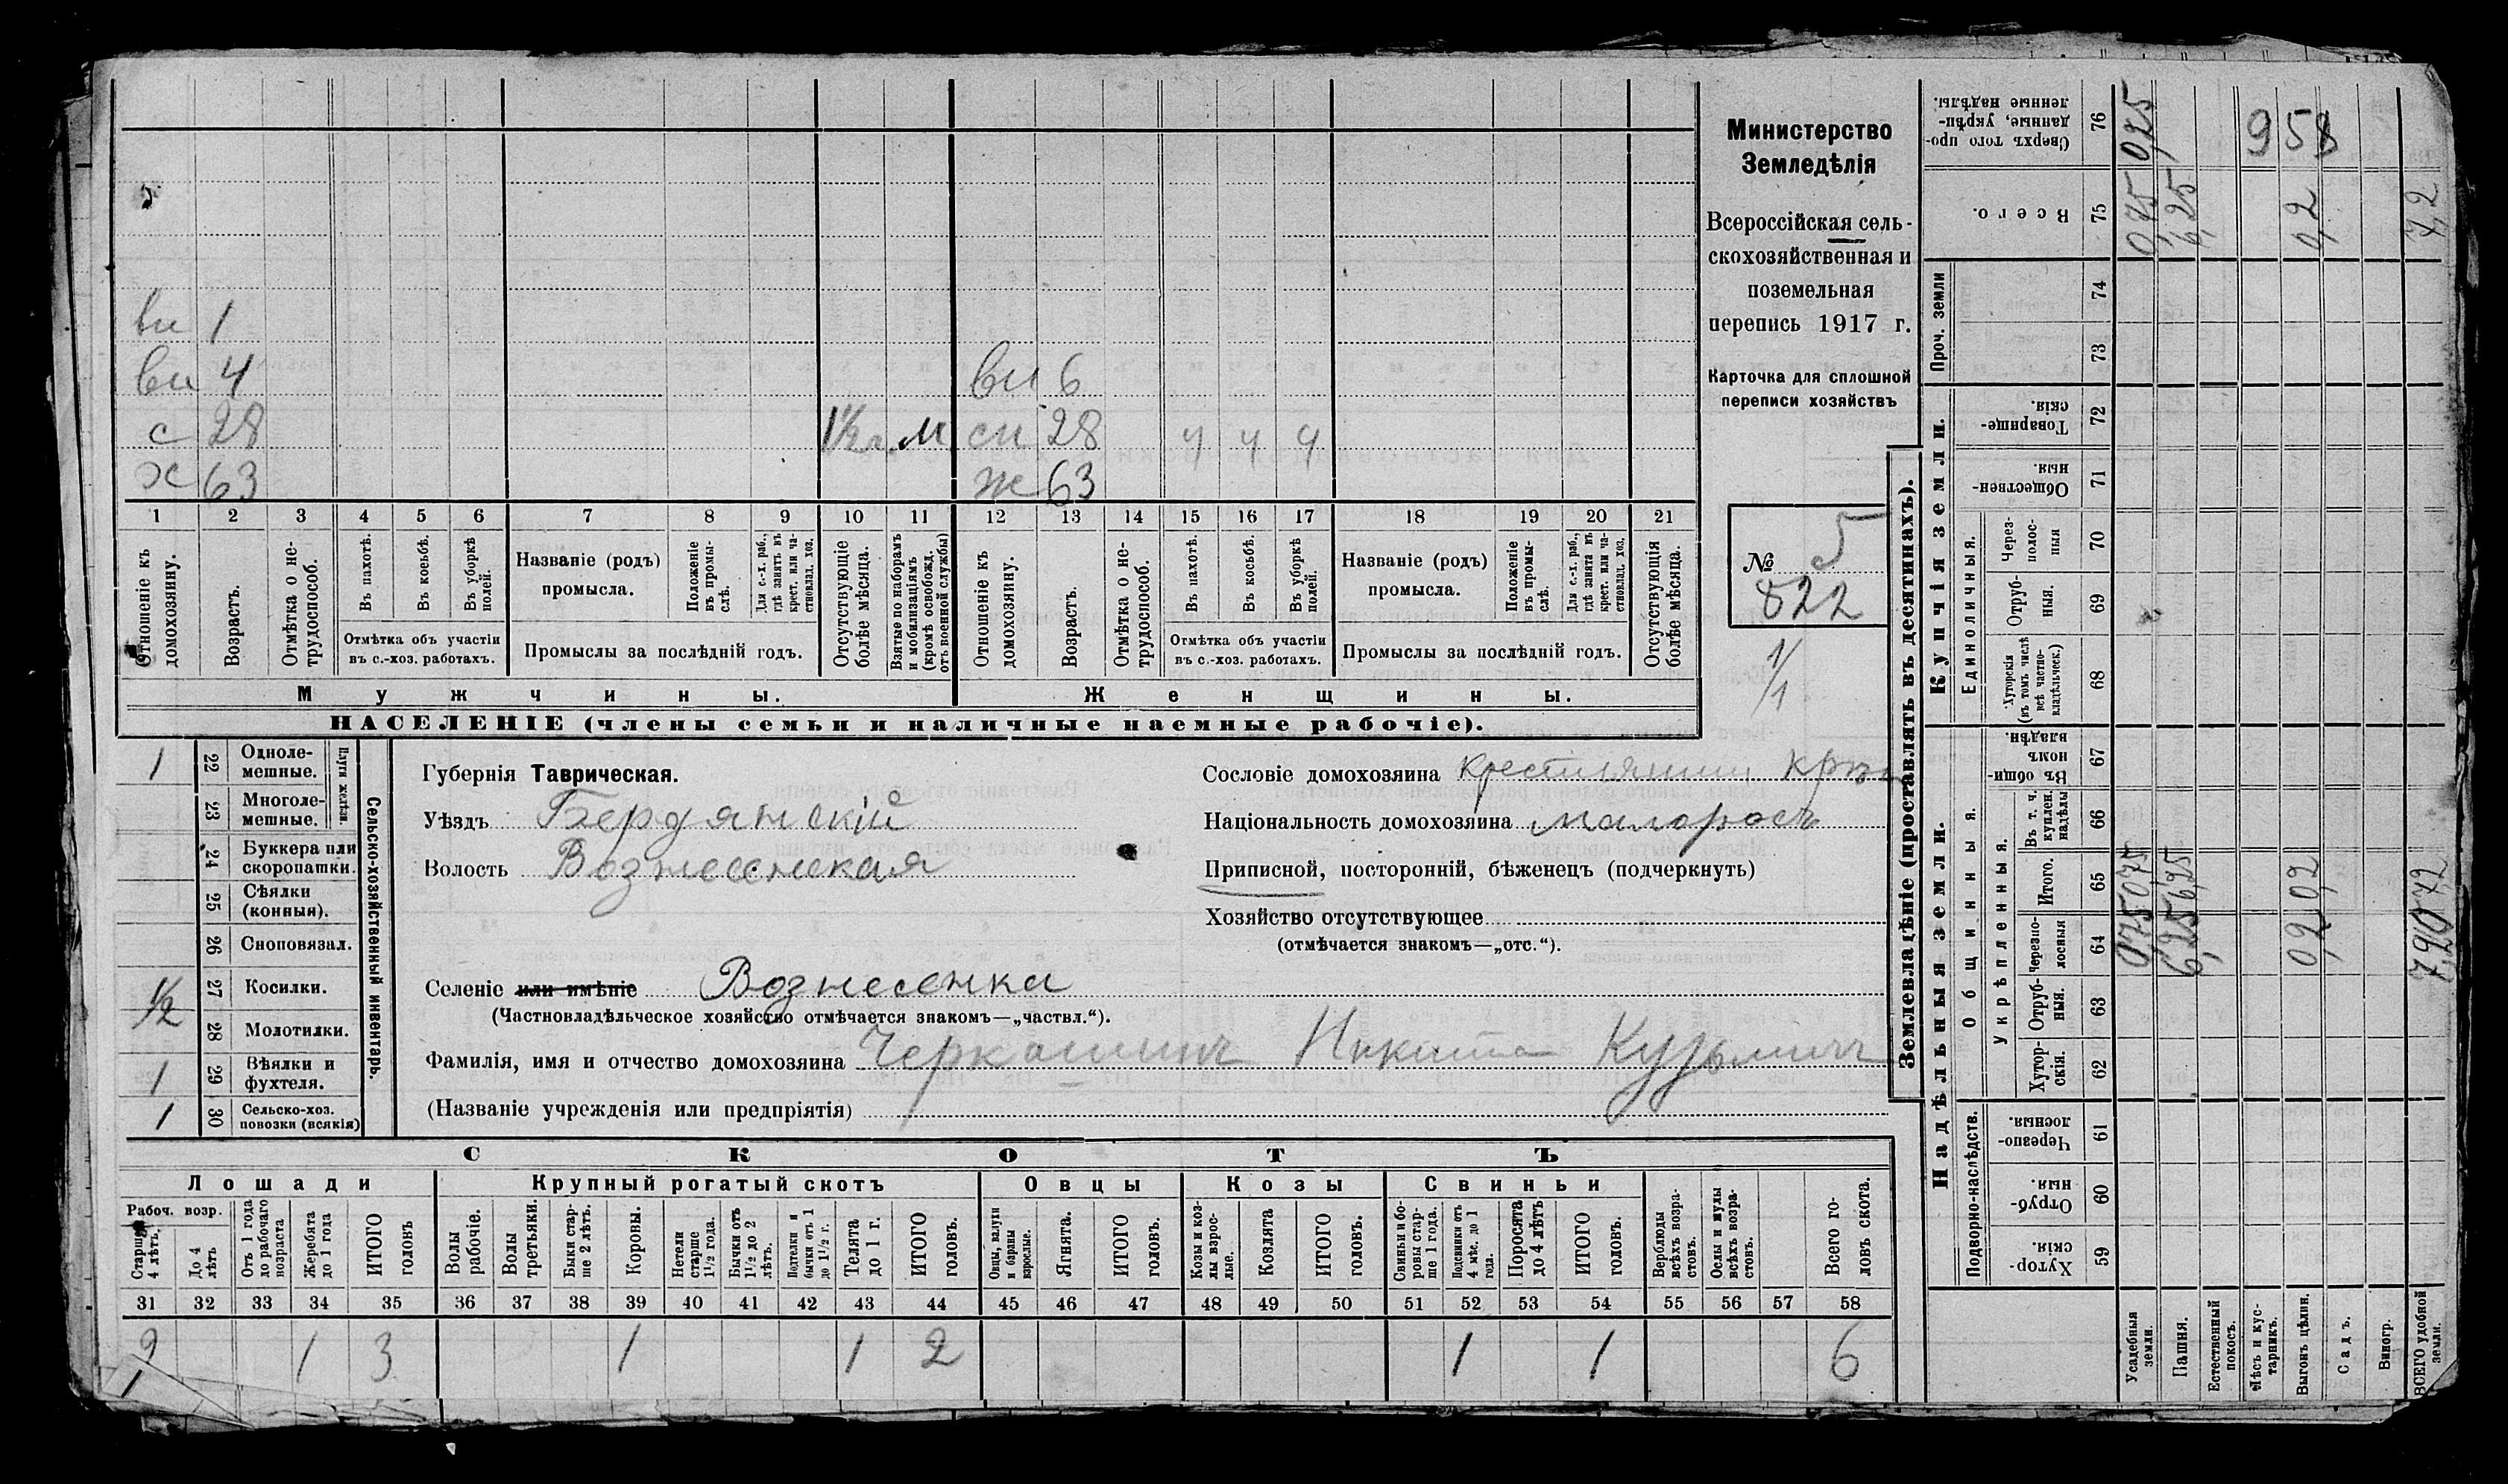 вн 1
вн 4 вн 6
с 28 1½ г. М сн 28 ч ч ч
х 63 ж 63
1 2 3 4 5 6 7 8 9 10 11 12 13 14 15 16 17 18 19 20 21
Отношеніе къ домохозяину.
Возрастъ.
Отмѣтка о нетрудоспособ.
Въ пахотѣ.
Въ косьбѣ.
Въ уборкѣ полей.
Отмѣтка объ участіи въ с.-хоз. работахъ.
Названіе (родъ) промысла.
Положеніе въ промыслѣ.
Для с.-х. раб., гдѣ занятъ въ крест. или частновлад. хоз.
Промыслы за послѣдній годъ.
Отсутствующіе болѣе мѣсяца.
Взятые по наборамъ и мобилизаціямъ (кромѣ освобожд. отъ военной службы)
Отношеніе къ домохозяину.
Возрастъ.
Отмѣтка о нетрудоспособ.
Въ пахотѣ.
Въ косьбѣ.
Въ уборкѣ полей.
Отмѣтка объ участіи въ с.-хоз. работахъ.
Названіе (родъ) промысла.
Положеніе въ промыслѣ.
Для с.-х. раб., гдѣ занята въ крест. или частновлад. хоз.
Промыслы за послѣдній годъ.
Отсутствующія болѣе мѣсяца.
Мужчины. Женщины.
НАСЕЛЕНІЕ (члены семьи и наличные наемные рабочіе).
Министерство
Земледѣлія
Всероссійская сель-
скохозяйственная и
поземельная
перепись 1917 г.
Карточка для сплошной
переписи хозяйствъ
№ 5
822
1/1
Сельско-хозяйственный инвентарь.
Плуги желѣзн.
1 22 Однолемешные.
23 Многолемешные.
24 Буккера или скоропашки.
25 Сѣялки (конныя).
26 Сноповязал.
1/2 27 Косилки.
28 Молотилки.
1 29 Вѣялки и фухтеля.
1 30 Сельско-хоз. повозки (всякія)
Губернія Таврическая.
Уѣздъ Бердянскій
Волость Вознесенская
Селеніе или имѣніе Вознесенка
(Частновладѣльческое хозяйство отмѣчается знакомъ—„частвл.“).
Фамилія, имя и отчество домохозяина Черкашинъ Никита Кузьмичъ
(Названіе учрежденія или предпріятія)
Сословіе домохозяина крестьянинъ
Національность домохозяина малоросъ
Приписной, посторонній, бѣженецъ (подчеркнуть)
Хозяйство отсутствующее
(отмѣчается знакомъ—„отс.“).
СКОТЪ
Лошади Крупный рогатый скотъ Овцы Козы Свиньи
Рабоч. возр.
Старше 4 лѣтъ.
До 4 лѣтъ
Отъ 1 года до рабочаго возраста
Жеребята до 1 года
ИТОГО головъ
Волы рабочіе.
Волы третьяки.
Быки старше 2 лѣтъ.
Коровы.
Нетели старше 1½ года.
Бычки отъ 1½ до 2 лѣтъ.
Подтелки и бычки отъ 1 до 1½ г.
Телята до 1 г.
ИТОГО головъ.
Овцы, валухи и бараны взрослые.
Ягнята.
ИТОГО головъ.
Козы и козлы взрослые.
Козлята
ИТОГО головъ.
Свиньи и боровы старше 1 года.
Подсвинки отъ 4 мѣс. до 1 года.
Поросята до 4 лѣтъ
ИТОГО головъ.
Верблюды всѣхъ возрастовъ.
Ослы и мулы всѣхъ возрастовъ.
Всего головъ скота.
31 32 33 34 35 36 37 38 39 40 41 42 43 44 45 46 47 48 49 50 51 52 53 54 55 56 57 58
2 1 3 1 1 2 1 1 6
1
Землевладѣніе (проставлять въ десятинахъ).
Купчія земли.
Надѣльныя земли.
Проч. земли
Единоличныя.
Общинныя.
Укрѣпленныя.
Подворно-наслѣдств.
Сверхъ того проданные, укрѣпленные надѣлы. 76 0,75 958
Всего. 75 0,75 6,25 0,2 7,2
74
73
Товарищескія. 72
Общественныя. 71
Черезполосныя 70
Отрубныя. 69
Хуторскія (въ томъ числѣ всѣ частновладѣльческ.) 68
Въ общиномъ владѣн. 67
Въ т. ч. куплен. надѣлы 66
Итого. 65 075 6,25 0,2 7,2
Черезполосныя 64 0,75 6,25 0,2 7,20
Отрубныя. 63
Хуторскія. 62
Черезполосныя. 61
Отрубныя. 60
Хуторскія. 59
Усадебныя земли.
Пашня.
Естественный покосъ.
Лѣсъ и кустарникъ.
Выгонъ цѣлин.
Садъ.
Виногр.
ВСЕГО удобной земли.